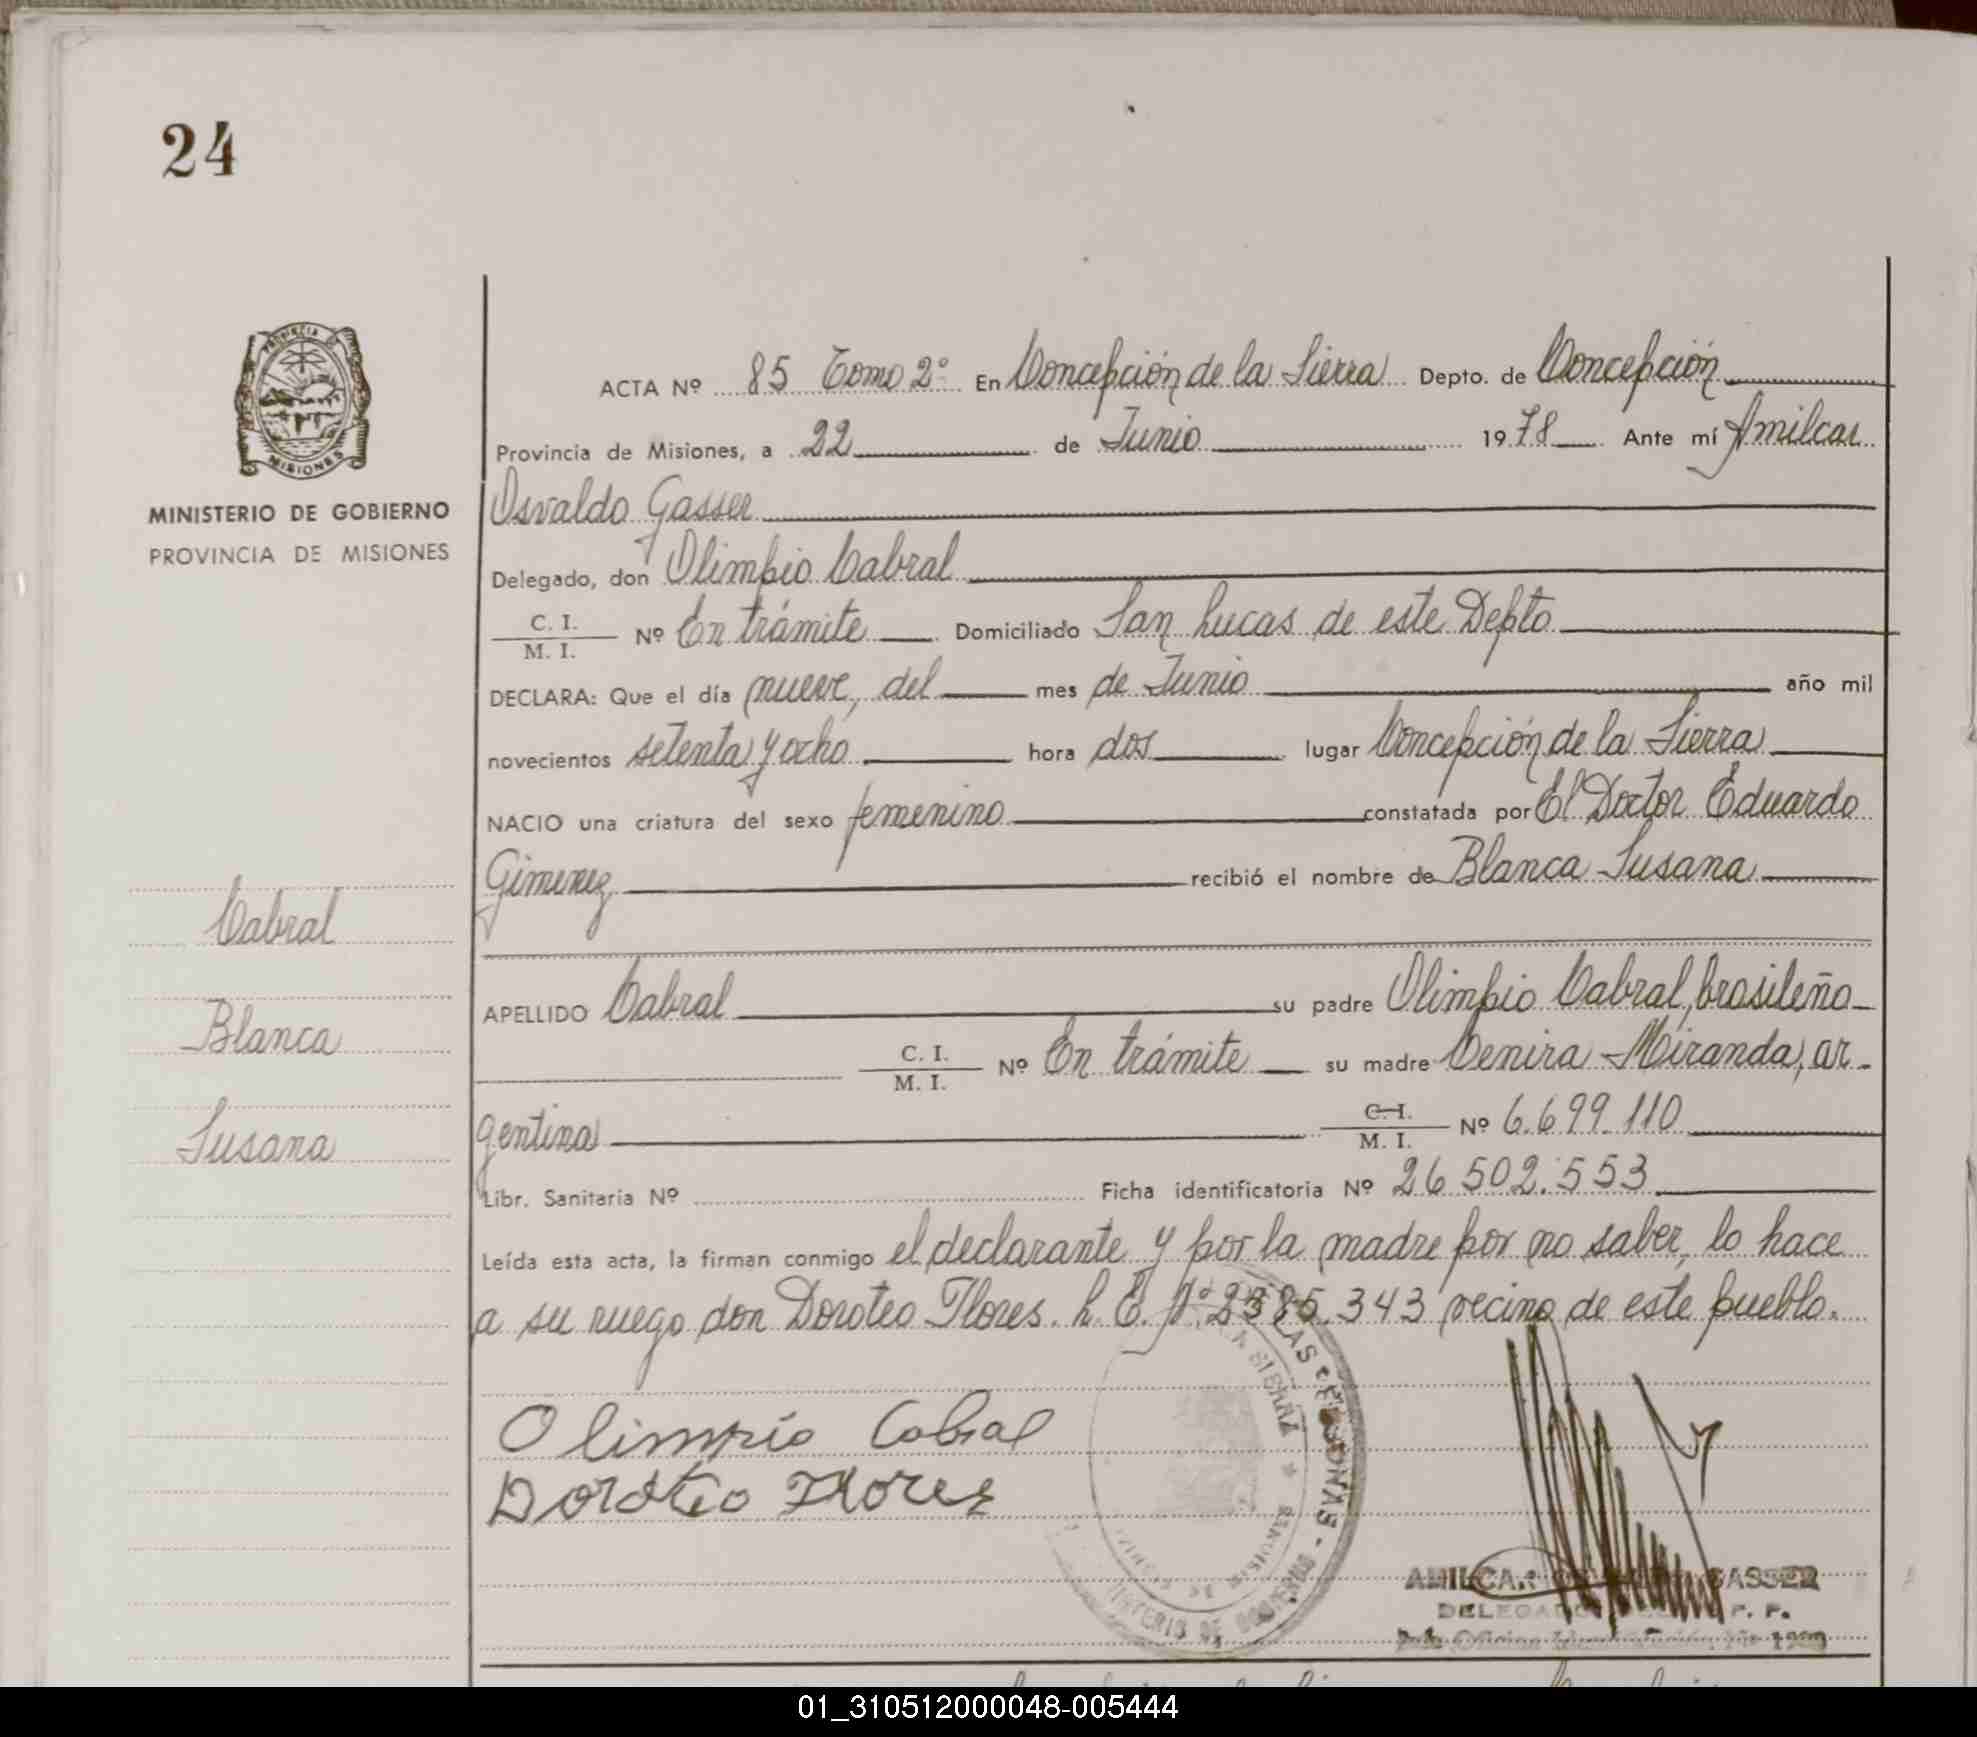 24
PROVINCIA DE
MISIONES
MINISTERIO DE GOBIERNO
PROVINCIA DE MISIONES
ACTA Nº 85 Tomo 2º En Concepción de la Sierra Depto. de Concepción
Provincia de Misiones, a 22 de Junio 1978 Ante mí Amilcar
Osvaldo Gasser
Delegado, don Olimpio Cabral
C. I.
M. I. Nº En trámite Domiciliado San Lucas de este Depto
DECLARA: Que el día nueve, del mes de Junio año mil
novecientos setenta y ocho hora dos lugar Concepción de la Sierra
NACIO una criatura del sexo femenino constatada por El Doctor Eduardo
Gimenez recibió el nombre de Blanca Susana
APELLIDO Cabral su padre Olimpio Cabral, brasileño
C. I.
M. I. Nº En trámite su madre Cenira Miranda, ar-
gentina C. I.
M. I. Nº 6.699.110
Libr. Sanitaria Nº Ficha identificatoria Nº 26.502.553
Leída esta acta, la firman conmigo el declarante y por la madre por no saber, lo hace
a su ruego don Doroteo Flores. L. E. Nº 2385.343 vecino de este pueblo.
Cabral
Blanca
Susana
Olimpio Cabral
Doroteo Flores
LAS PERSONAS
MINISTERIO DE GOBIERNO
SIERRA
AMILCAR GASSER
DELEGADO
01_310512000048-005444